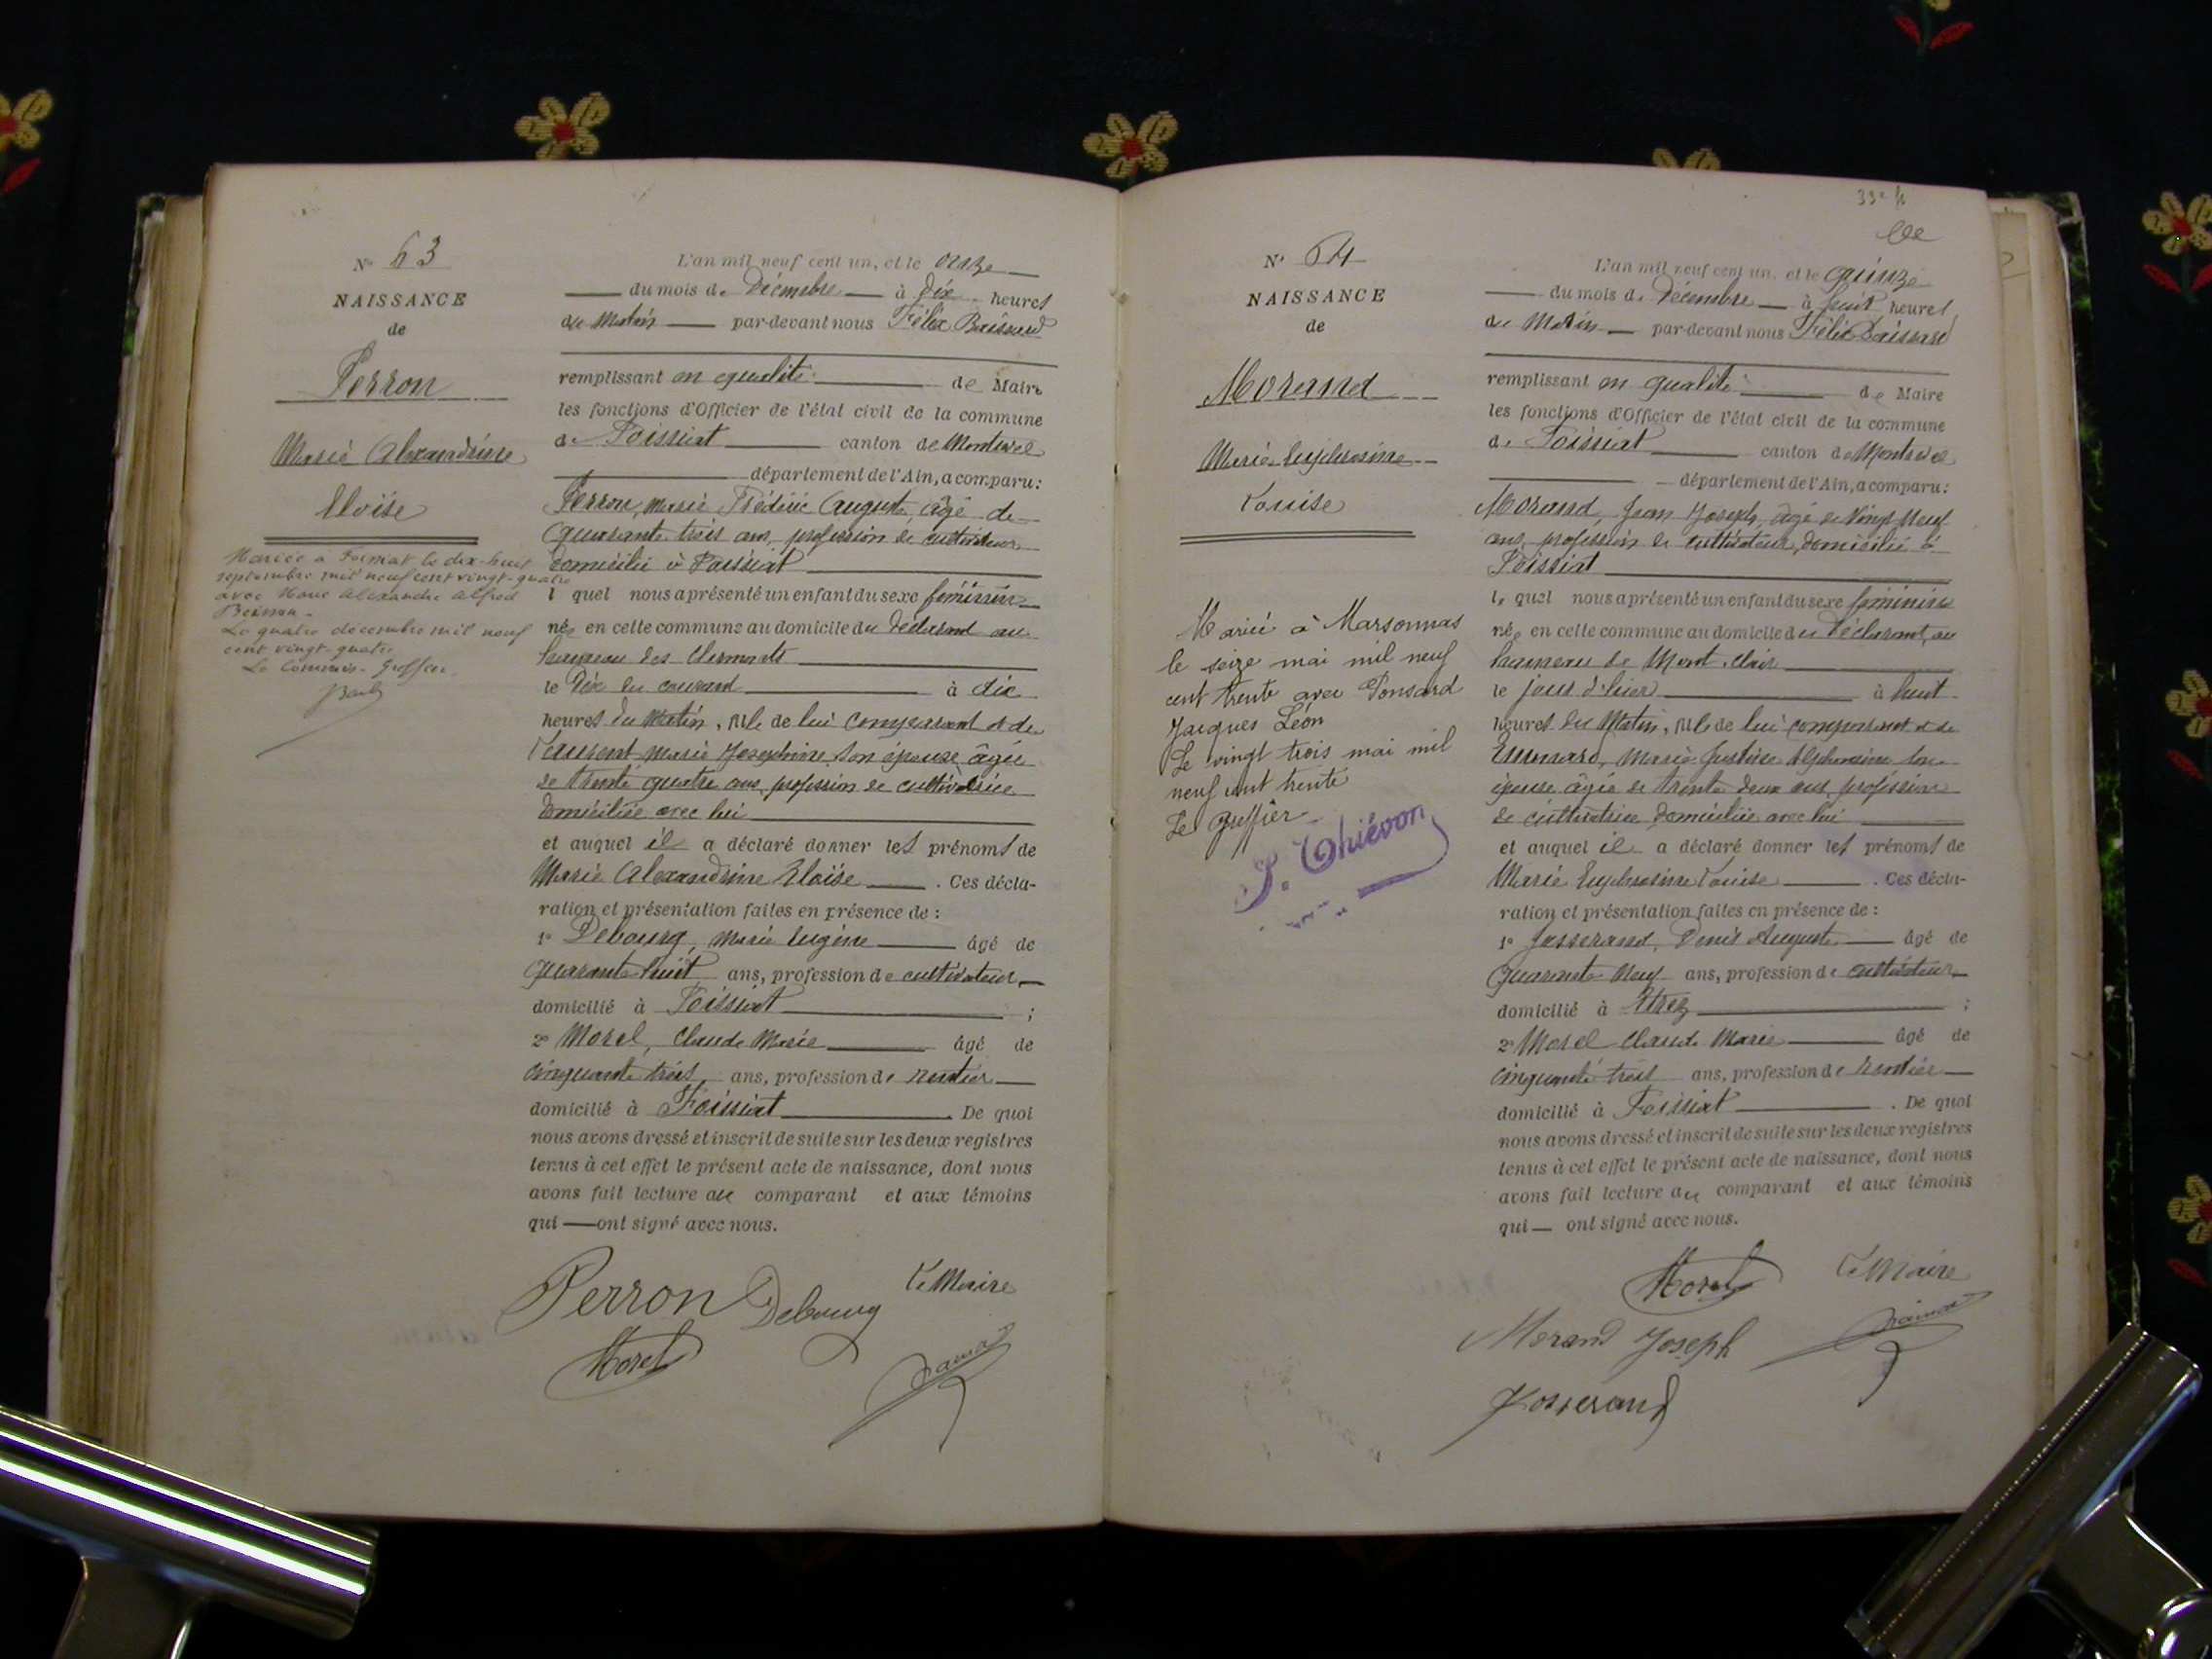 N° 63
NAISSANCE
de
Perron
Marie Alexandrine
Eloïse
Mariée à Foissiat le dix-huit
septembre mil neuf cent vingt-quatre
avec Marie Alexandre Alfred
Le quatre décembre mil neuf
cent vingt-quatre
Le Commis-Greffier
L'an mil neuf cent un, et le onze
du mois de Décembre à dix heures
du Matin par-devant nous Félix
remplissant en qualité de Maire
les fonctions d'Officier de l'état civil de la commune
de Foissiat canton de Montrevel
département de l'Ain, a comparu:
Perron, Marie Frédéric Auguste, âgé de
quarante trois ans, profession de cultivateur
domicilié à Foissiat
lequel nous a présenté un enfant du sexe féminin
née en cette commune au domicile du déclarant au
hameau des Clermonts
le dix du courant à dix
heures du Matin, fille de lui comparant et de
Laurent Marie Joséphine son épouse, âgée
de trente quatre ans, profession de cultivatrice
domiciliée avec lui
et auquel il a déclaré donner les prénoms de
Marie Alexandrine Eloïse. Ces décla-
ration et présentation faites en présence de :
1° Debourg, Marie Eugène âgé de
quarante huit ans, profession de cultivateur
domicilié à Foissiat ;
2° Morel, Claude Marie âgé de
cinquante trois ans, profession de rentier
domicilié à Foissiat. De quoi
nous avons dressé et inscrit de suite sur les deux registres
tenus à cet effet le présent acte de naissance, dont nous
avons fait lecture au comparant et aux témoins
qui ont signé avec nous.
Perron Debourg Le Maire
Morel
33e f
N° 64
NAISSANCE
de
Morand
Marie Euphrosine
Louise
Marié à Marsonnas
le seize mai mil neuf
cent trente avec Ponsard
Jacques Léon
Le vingt trois mai mil
neuf cent trente
Le Greffier
S. Thiévon
L'an mil neuf cent un, et le quinze
du mois de Décembre à huit heures
du Matin par-devant nous Félix
remplissant en qualité de Maire
les fonctions d'Officier de l'état civil de la commune
de Foissiat canton de Montrevel
département de l'Ain, a comparu:
Morand, Jean Joseph, âgé de vingt neuf
ans, profession de cultivateur, domicilié à
Foissiat
lequel nous a présenté un enfant du sexe féminin
née en cette commune au domicile du déclarant, au
hameau de Mont-clair
le jour d'hier à huit
heures du Matin, fille de lui comparant et de
Marie Justine Alphonsine son
épouse âgée de trente deux ans, profession
de cultivatrice domiciliée avec lui
et auquel il a déclaré donner les prénoms de
Marie Euphrosine Louise. Ces décla-
ration et présentation faites en présence de :
1° Josserand, Denis Auguste âgé de
quarante neuf ans, profession de cultivateur
domicilié à Etrez ;
2° Morel Claude Marie âgé de
cinquante trois ans, profession de rentier
domicilié à Foissiat. De quoi
nous avons dressé et inscrit de suite sur les deux registres
tenus à cet effet le présent acte de naissance, dont nous
avons fait lecture au comparant et aux témoins
qui ont signé avec nous.
Morel Le Maire
Morand Joseph
Josserand